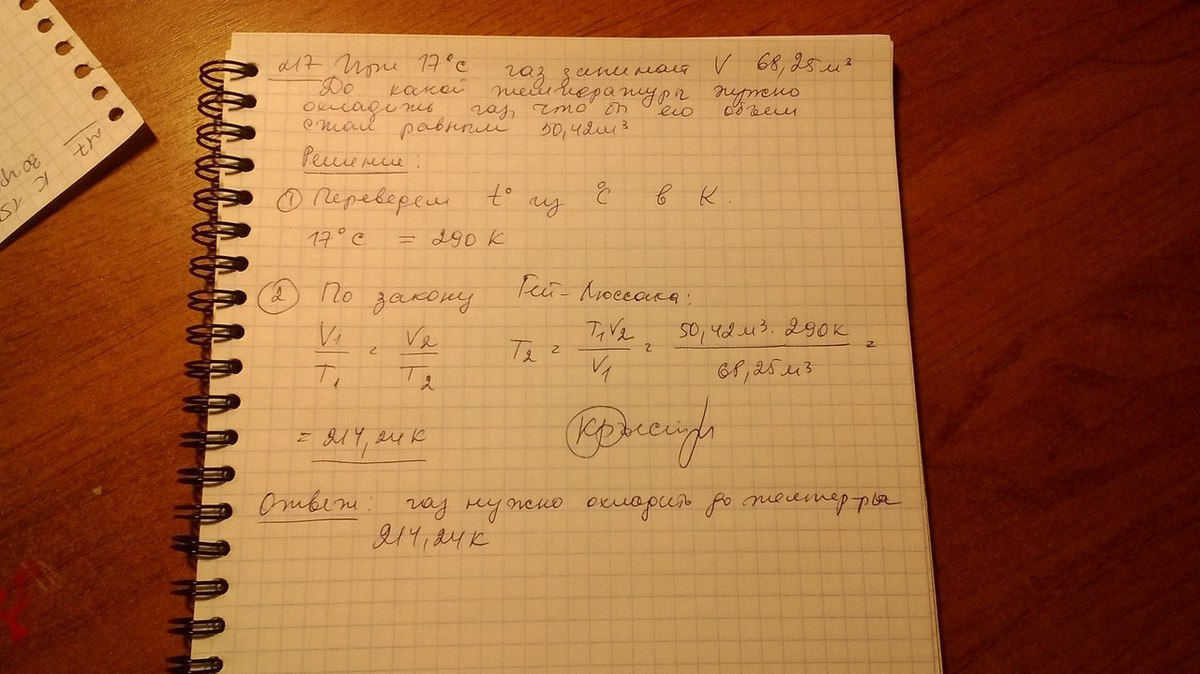 217 При 17°С газ занимает V 68,25м³
До какой температуры нужно
охладить газ, что бы его объем
стал равным 50,42м³
Решение:
① Переведем t° из °С в К.
17°С = 290 К
② По закону Гей-Люссака:
V₁/T₁ = V₂/T₂ T₂ = T₁V₂/V₁ = 50,42м³ · 290К/68,25м³ =
= 214,24К
Ответ: газ нужно охладить до темпер-ры
214,24К
217
К